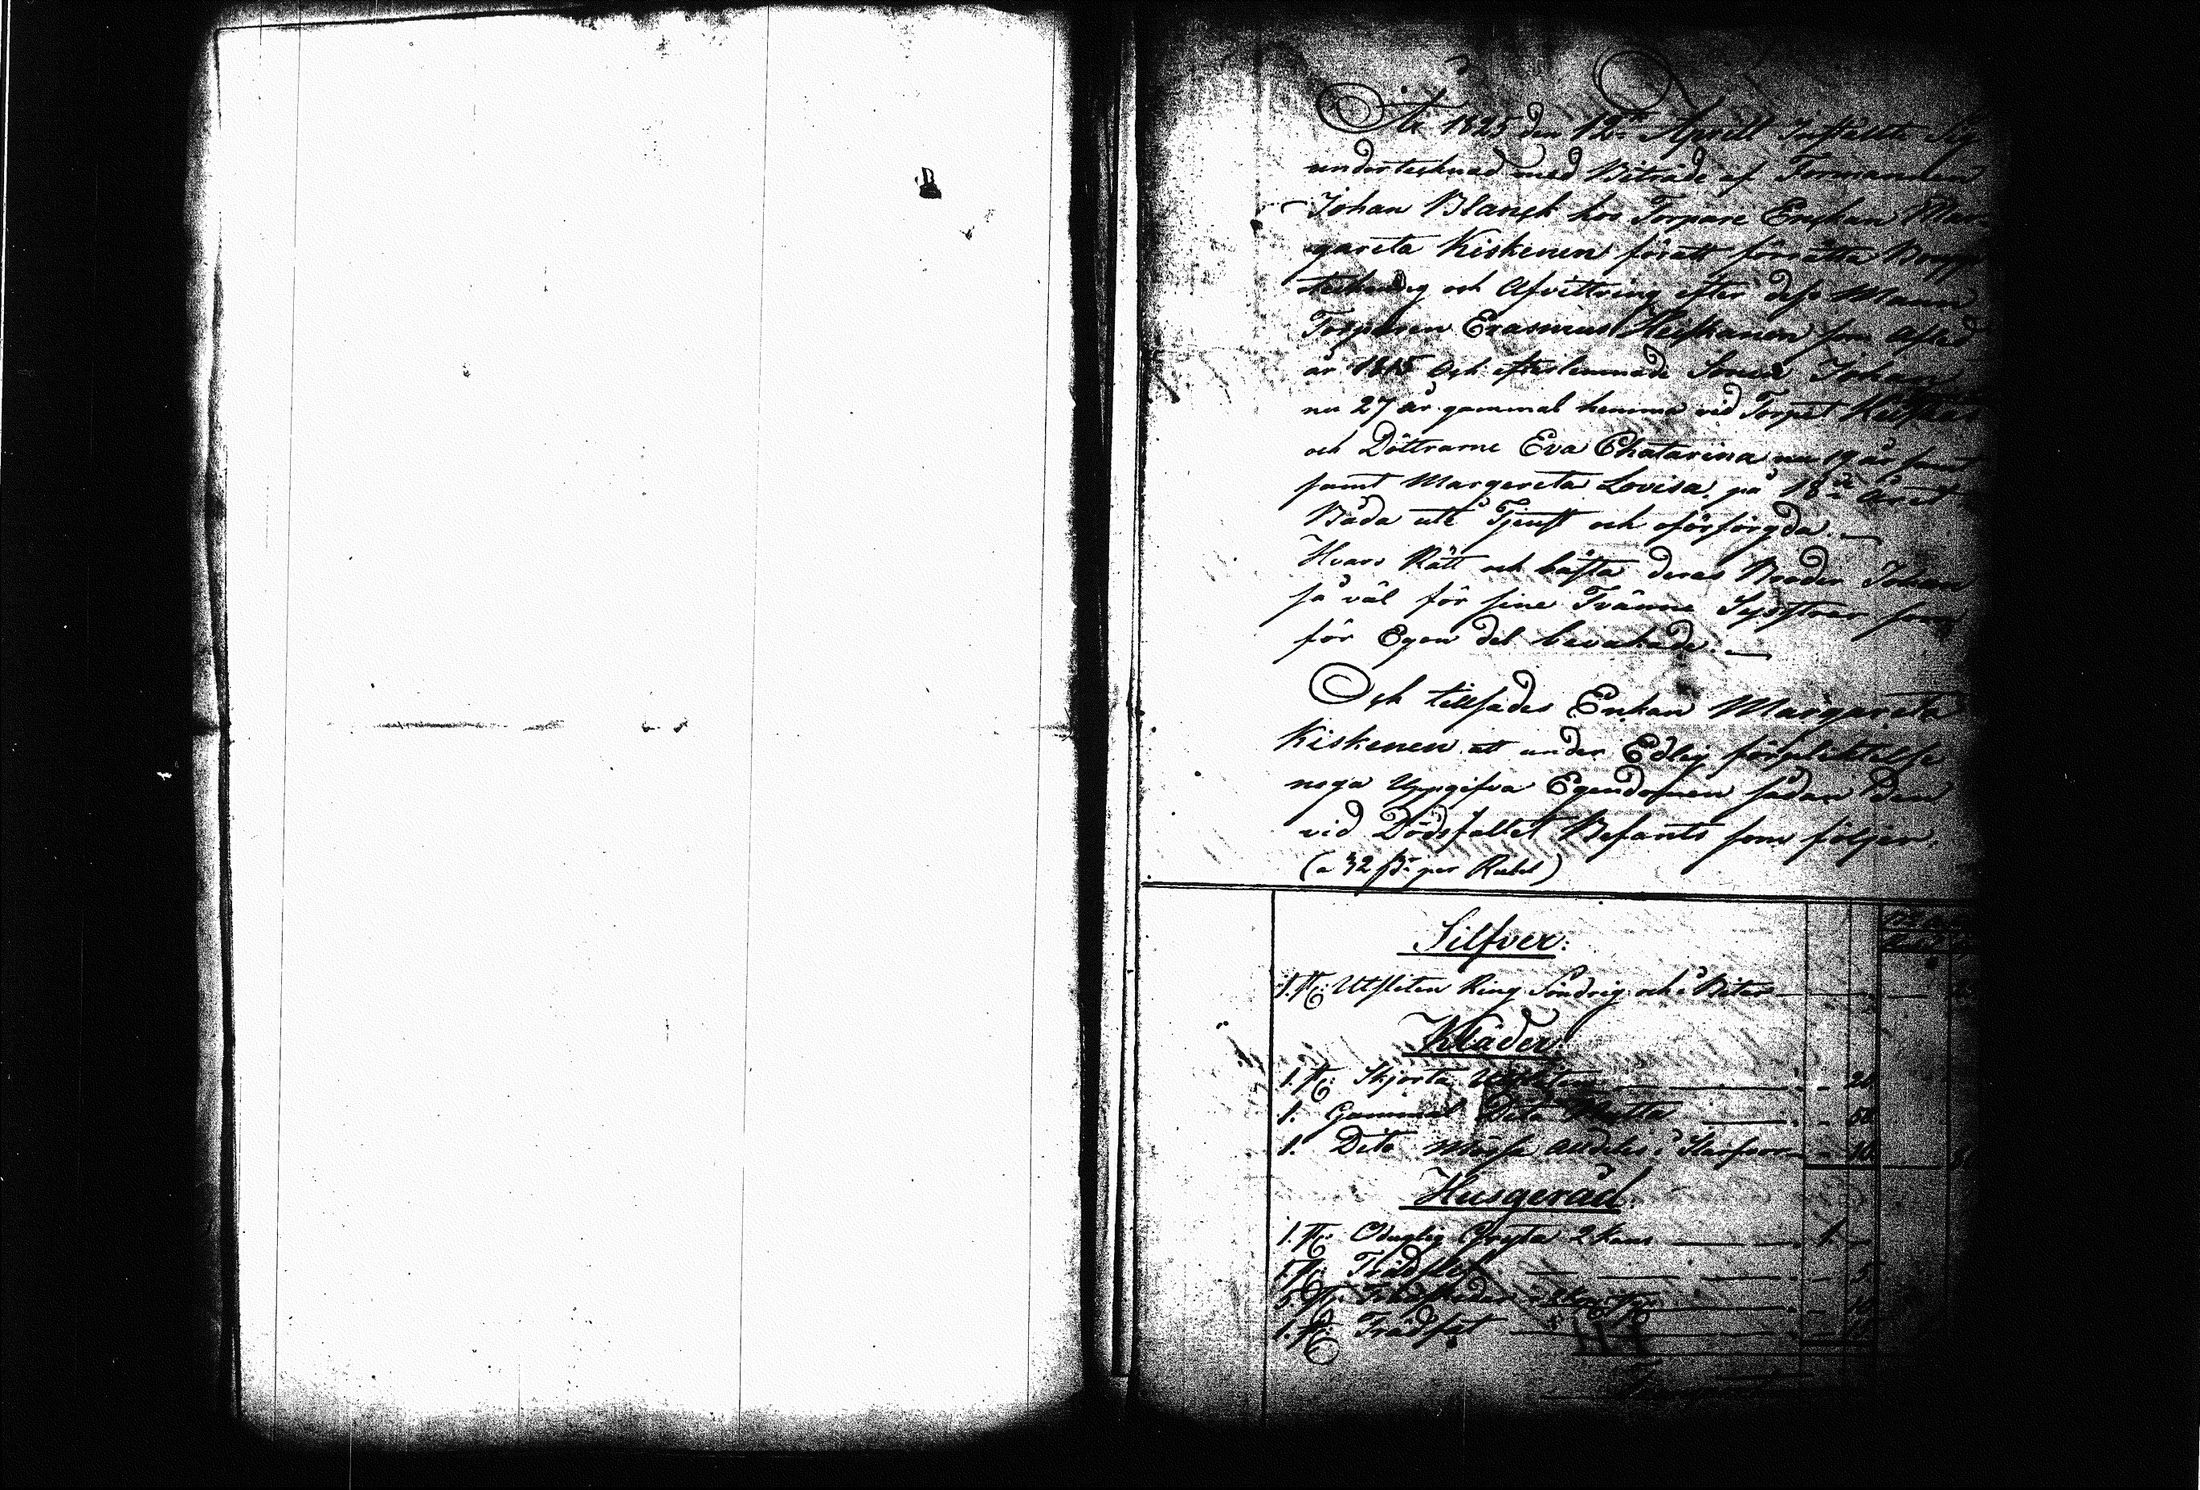 År 1825 den 12te Aprill Instälte Sig
undertecknad med Biträde af Formannen
Johan Blanck hos Torpare Enckan Mar-
gareta Kiskenen föratt förrätta Boupp
teckning och Afvittring efter dess Mann
Torparen Erasmus Heiskanen som Afled
år 1815 Och efterlemnade Sonen Johan
nu 27 år gammal hemma vid Torpet
och Döttrarne Eva Chatarina nu 19 år samt
samt Margereta Lovisa på 18de Året
Båda ute i Tjenst och oförsörgda.
Hvars Rätt och bästa deras Broder Johan
så väl för sine Tvänne Systrar som
för Egen del bevakade.
Och tillsades Enkan Margareta
Kiskenen att under Edlig förpliktelse
noga Uppgifva Egendomen sådan den
vid Dödsfallet Befants som följer.
(a 32 per Rubel)
Silfver:
1. st: Utsliten Ring Söndrig och i Bitar
Kläder
1. st: Skjorta Utsliten 20
1. Gammal Dito 50
1. Dito Mössa Alldeles i Skarfvor 10.
Husgeråd.
1. st: Oduglig Gryta 2 Kans 1. -
1. st: Trädslef 5.
5. st: Trädskedar 10
1. st: Trädfat